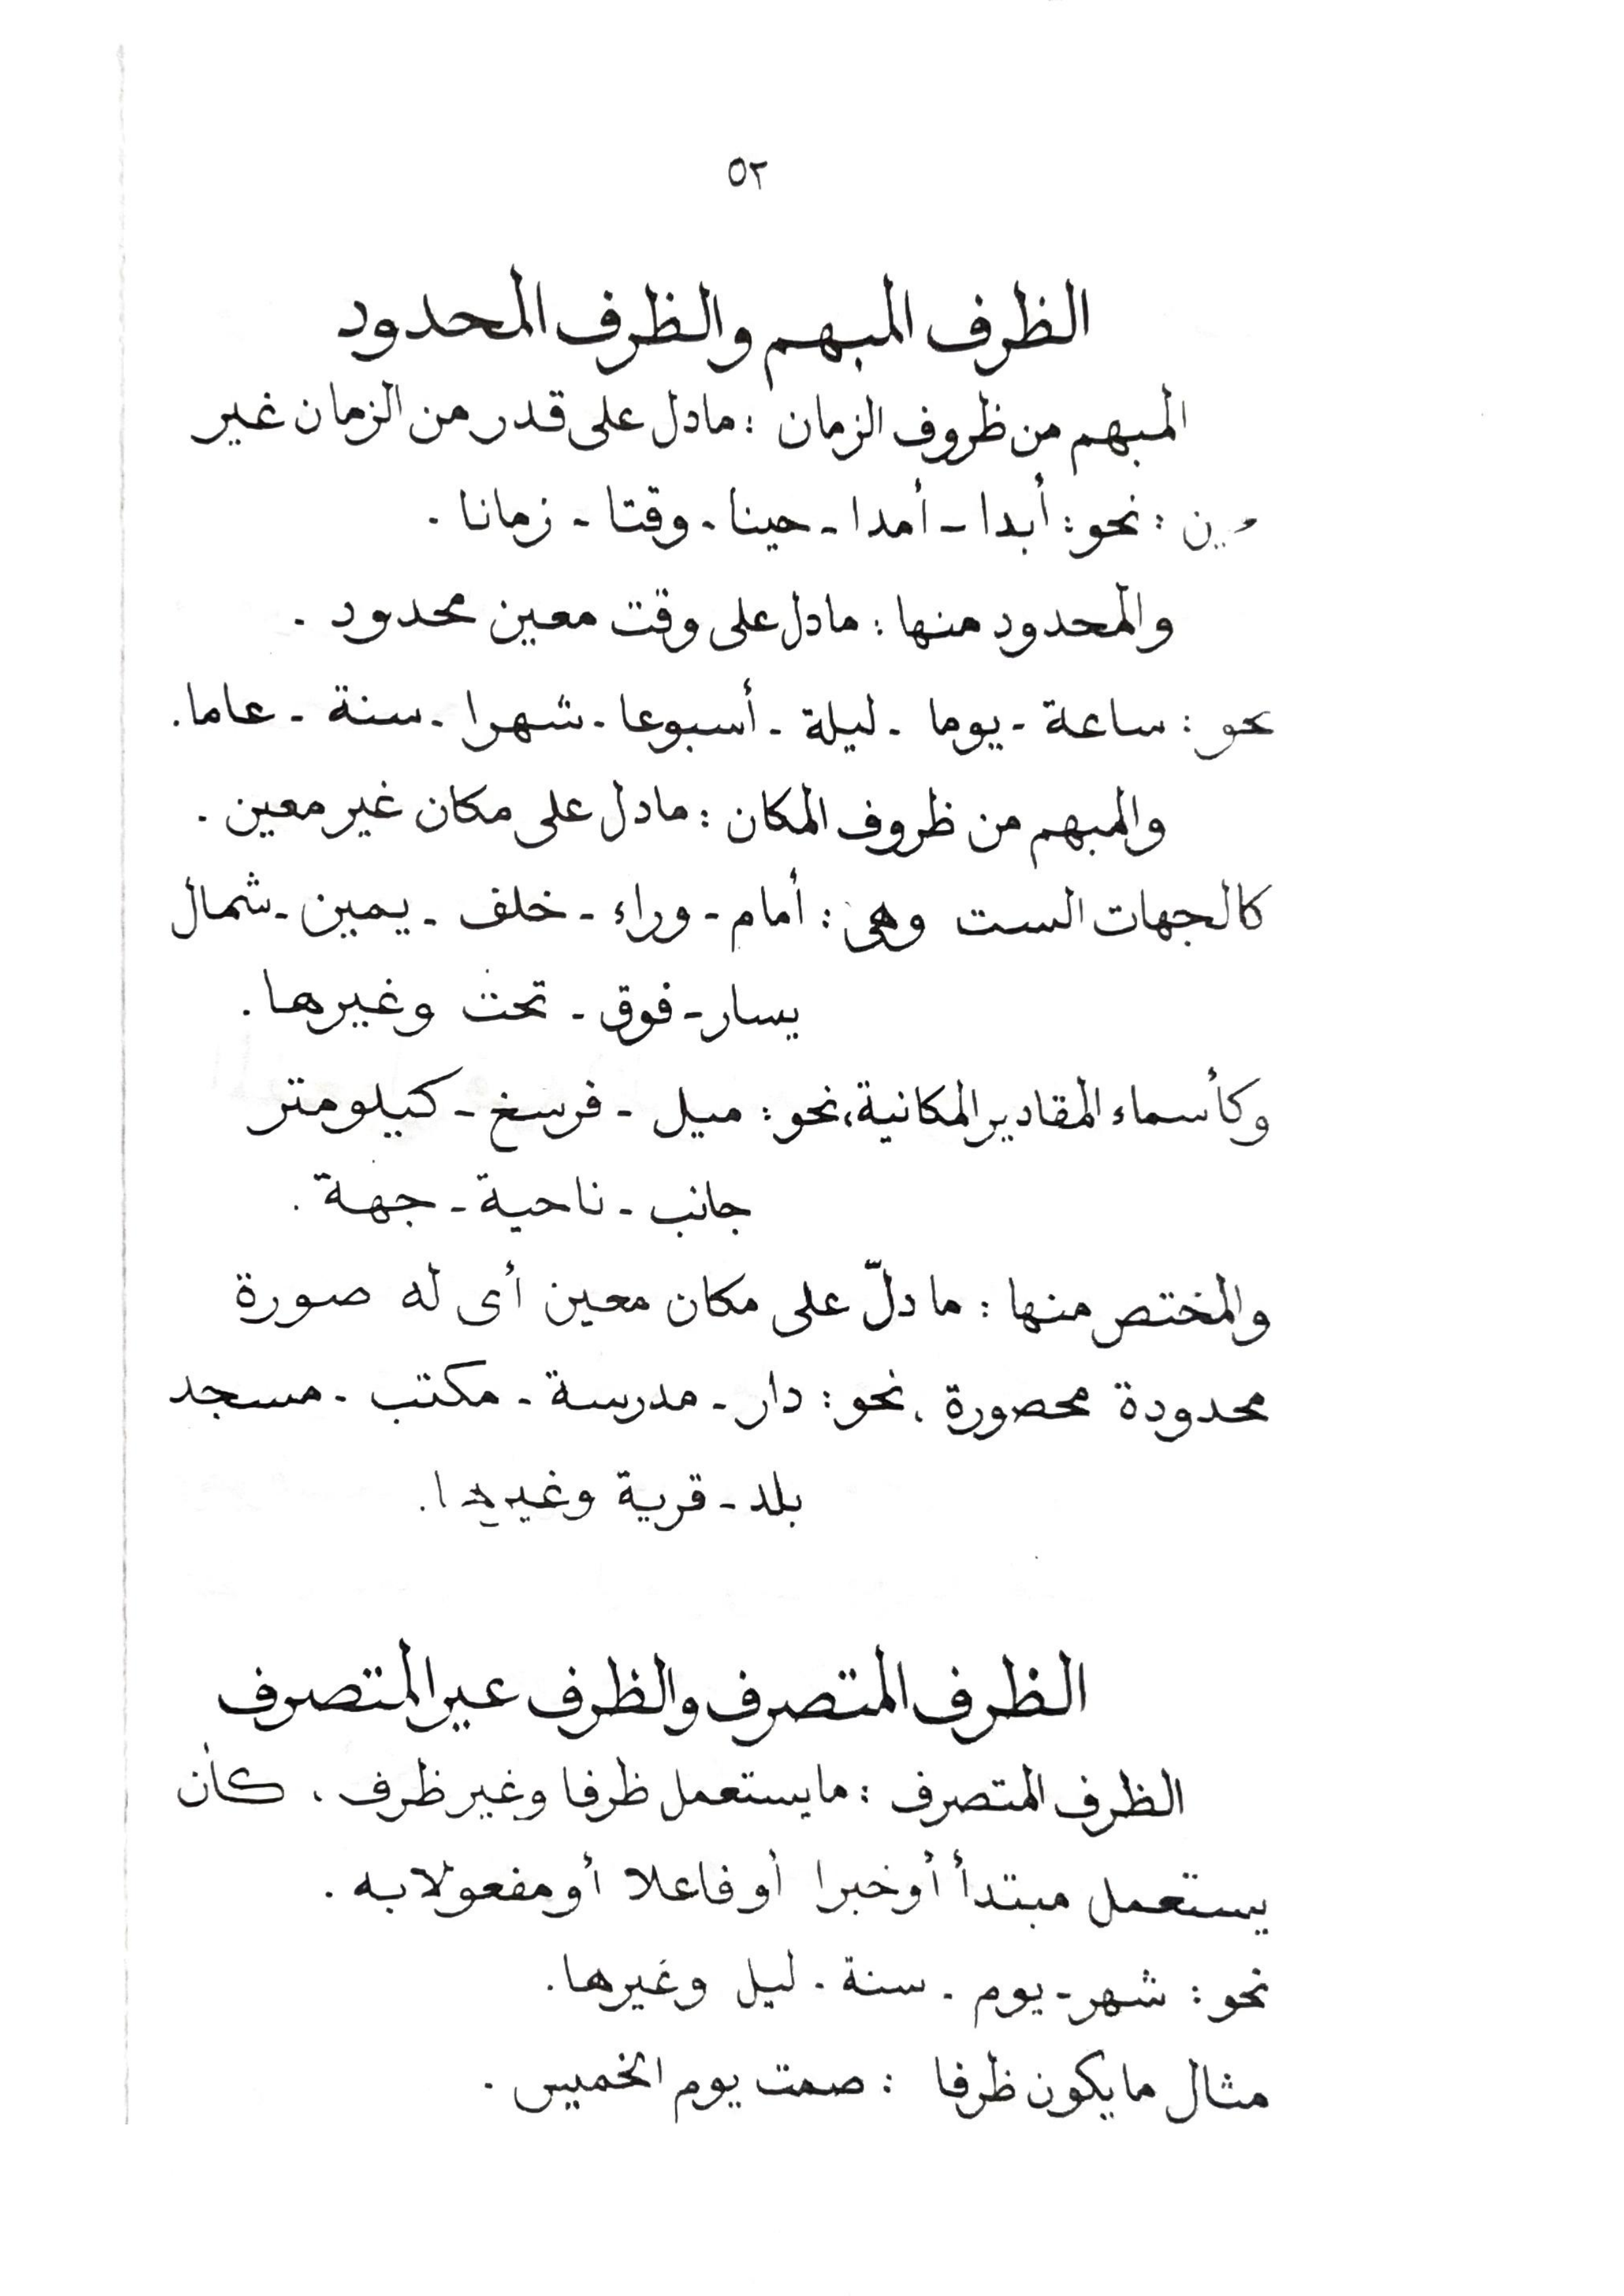 ٥٢
الظرف المبهم والظرف المحدود
المبهم من ظروف الزمان : مادل على قدر من الزمان غير
: نحو : أبدا - أمدا - حينا - وقتا - زمانا .
والمحدود منها : مادل على وقت معين محدود .
نحو : ساعة - يوما - ليلة - أسبوعا - شهرا - سنة - عاما .
والمبهم من ظروف المكان : مادل على مكان غير معين .
كالجهات الست وهى : أمام - وراء - خلف - يمين - شمال
يسار - فوق - تحت وغيرها .
وكأسماء المقادير المكانية، نحو : ميل - فرسخ - كيلومتر
جانب - ناحية - جهة .
والمختص منها : مادلّ على مكان معين أى له صورة
محدودة محصورة . نحو : دار - مدرسة - مكتب - مسجد
بلد - قرية وغيرها .
الظرف المتصرف والظرف عير المتصرف
الظرف المتصرف : مايستعمل ظرفا وغير ظرف . كأن
يستعمل مبتدأ أوخبرا أوفاعلا أومفعولابه .
نحو : شهر - يوم - سنة - ليل وغيرها .
مثال مايكون ظرفا : صمت يوم الخميس .